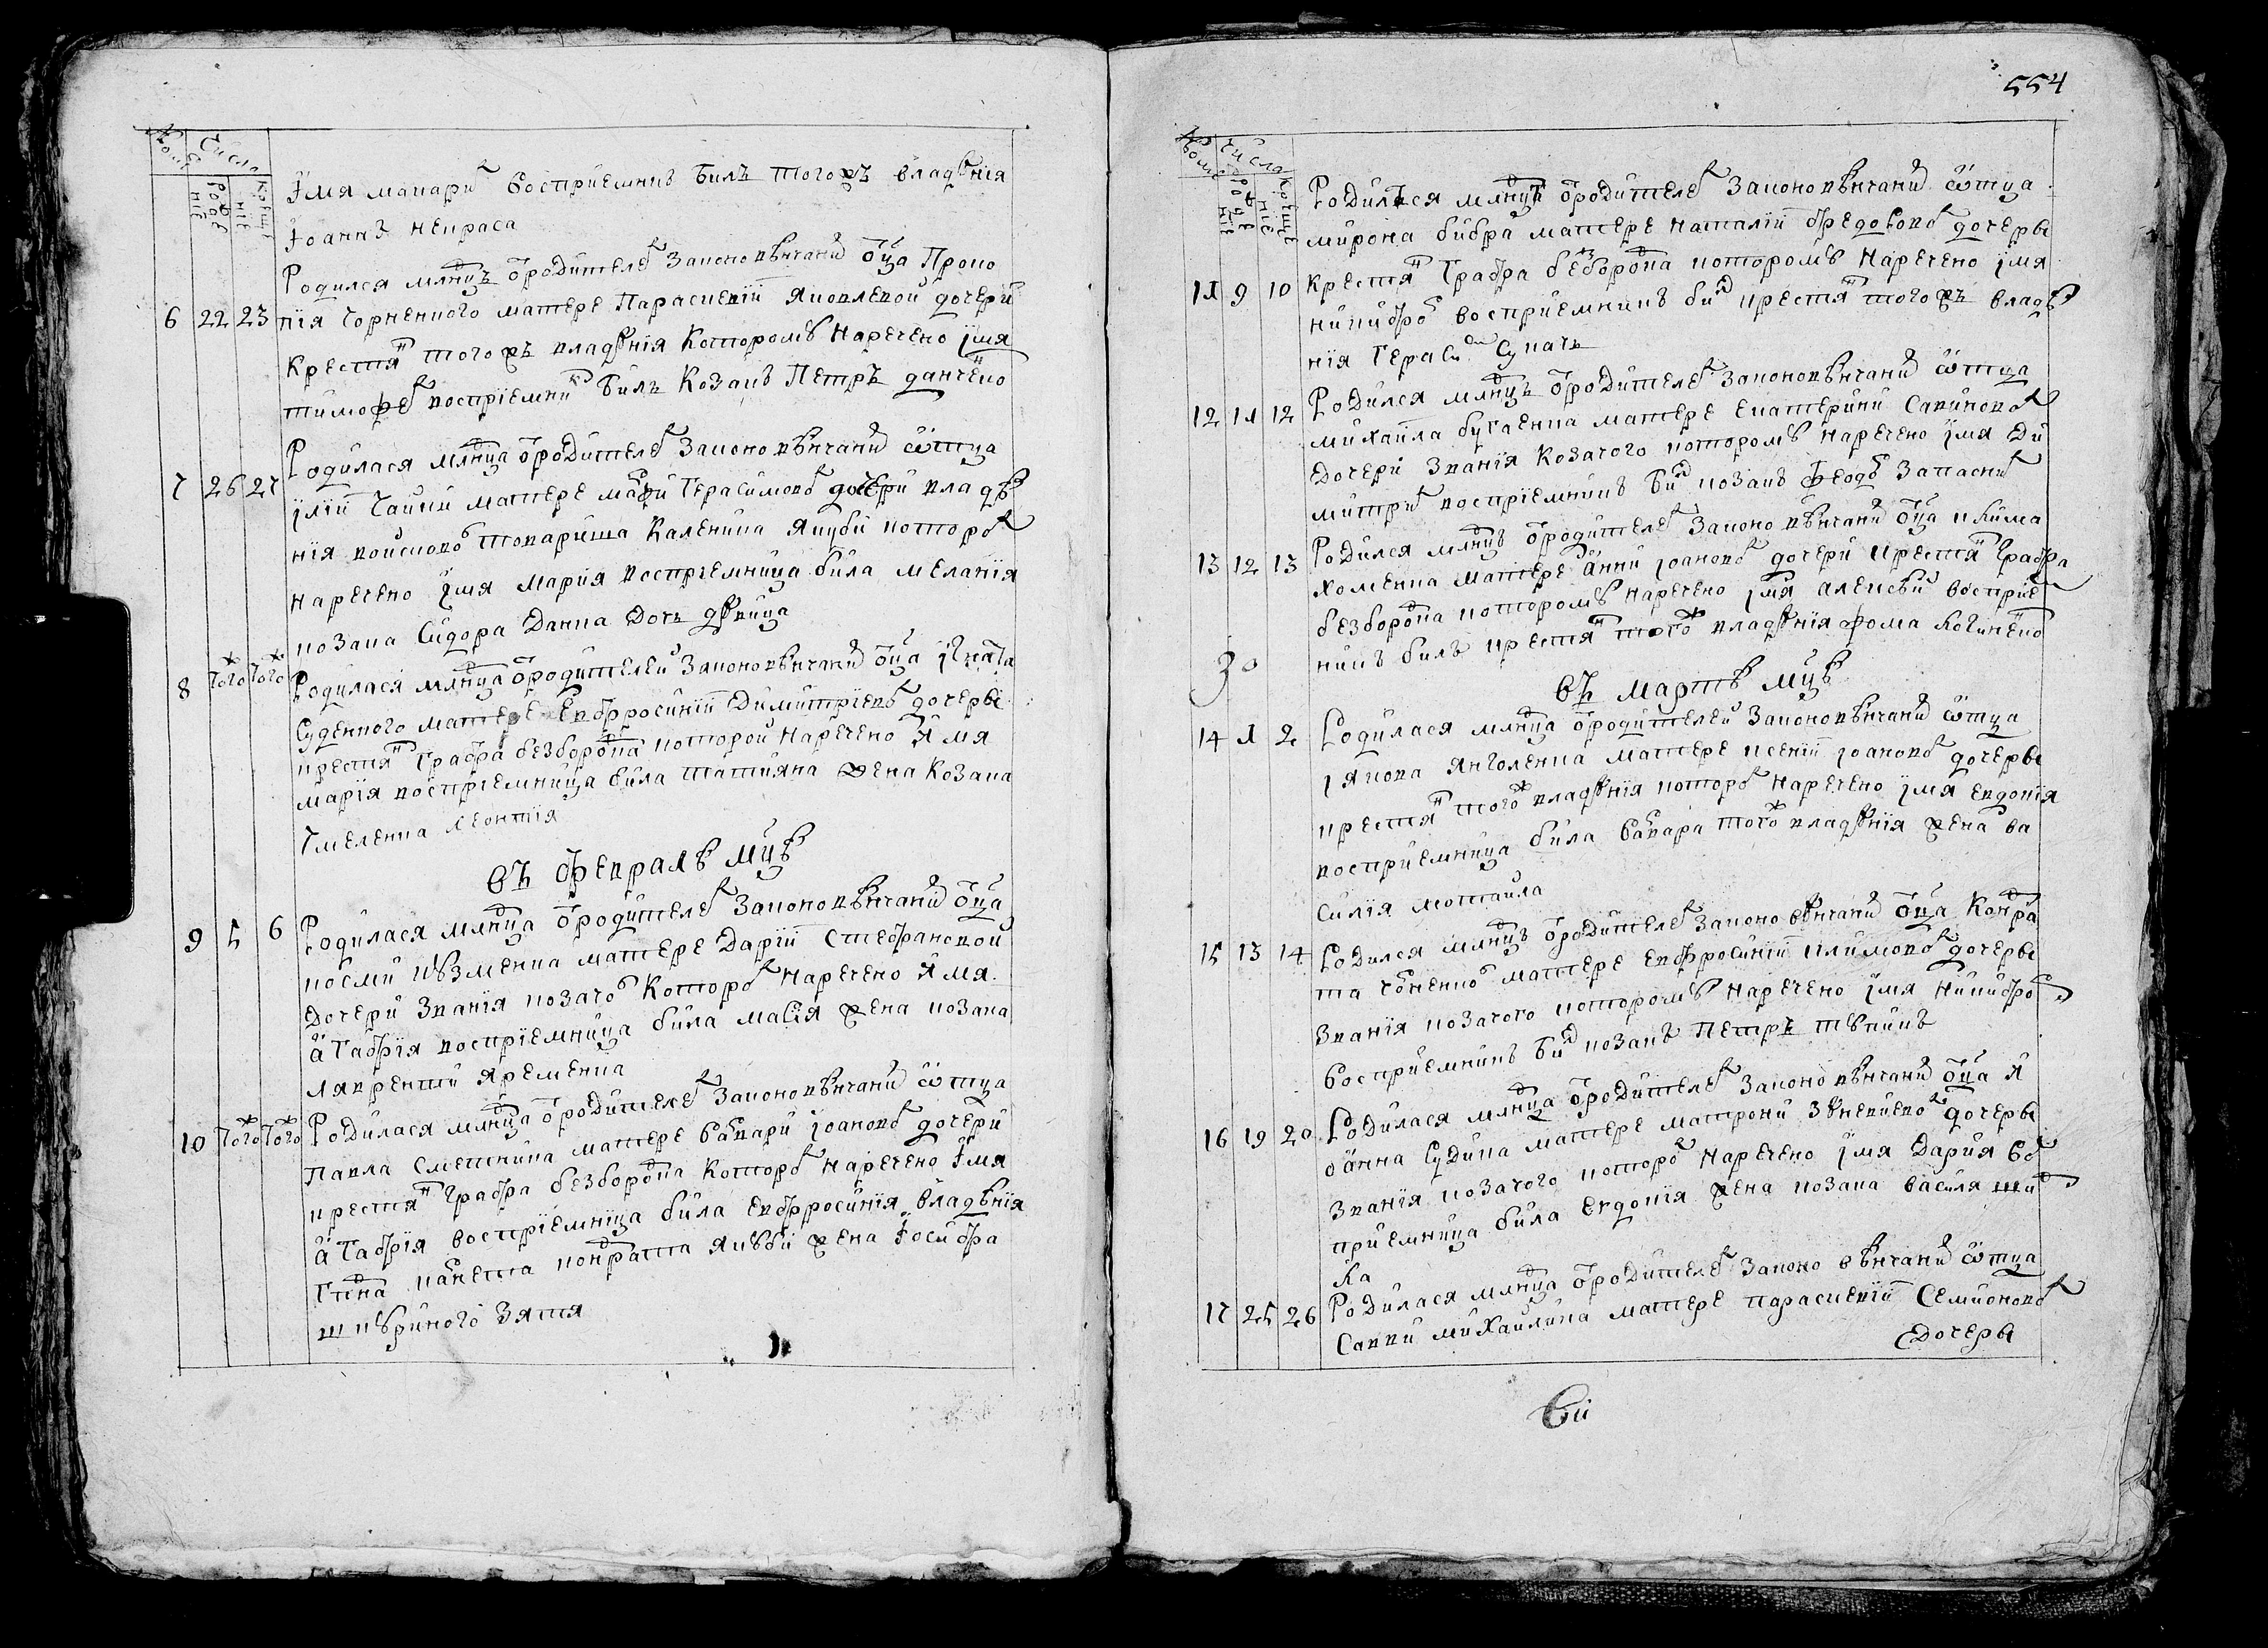 Імя макари восприемник билъ тогожъ владѣнія
Іоаннъ некраса
6 22 23
Родился младнцъ ѿ родителей законовѣнчаний оца Проко
пія Чорненкого матере Параскевіи яковлевой дочери
крестя тогожъ владѣнія Которомѣ наречено імя
тимофей воспріемник билъ Козакъ Петръ данченко
7 26 27
Родилася младнца ѿ родителей законовѣнчаний отца
іліи Чайки матере марфи Герасимовой дочери владѣ
нія войсково товариша Каленика якуби которой
наречено імя мария воспріемница била меланія
козака Сидора Данка дочъ дѣвица
8 Того Того
Родилася младнца ѿ родителей законовѣнчаний оца ігната
Суденкого матере Евфросиніи Димитріевой дочеры
крестя графа безбородка которой наречено імя
марія воспріемница била татияна жена Козака
Леонтія
въ февралѣ мцѣ
9 5 6
Родилася младнца ѿ родителей законовѣнчаний оца
косми кѣзменка матере Дарііи Стефановой
дочери званія козачо Которой наречено імя
агафія воспріемница била масія жена козака
лаврентия яременка
10 Того Того
Родилася младнца ѿ родителей законовѣнчаний отца
павла матере варвари іоановой дочери
крестя графа безбородка Которой наречено імя
агафія воспріемница била Евфросинія владѣнія
кондрата якѣби жена Іосифа
шкѣриного зятя
554
11 9 10
Родилъся младнцъ ѿ родителей законовѣнчаний отца
мирона бибра матере наталіи федоровой дочеры
крестя графа безбородка которомѣ наречено імя
никифоръ восприемникъ бил крестя тогожъ владѣ
нія
12 11 12
Родился младнцъ ѿ родителей законовѣнчаний отца
михаила бугаенка матере екатерини савиновой
дочери званія козачого которомѣ наречено імя ди
митрий воспріемникъ бил козакъ феодор запасний
13 12 13
Родился младнцъ ѿ родителей законовѣнчаний оца якима
хоменка матере анни іоановой дочери крестя графа
безбородка которомѣ наречено імя алексѣй восприе
никъ билъ крестя того владѣнія фома
въ мартѣ мцѣ
14 1 2
Родилася младнца ѿ родителей законовѣнчаний отца
іякова янголенка матере ксеніи іоановой дочеры
крестя того владѣнія которой наречено імя евдокія
восприемница била варвара того владѣнія жена ва
силія мотайла
15 13 14
Родился младнцъ ѿ родителей законовѣнчаний оца Кондра
та матере евфросиніи климовой дочеры
званія козачого которомѣ наречено імя никифор
восприемникъ бил козакъ Петръ
16 19 20
Родилася младнца ѿ родителей законовѣнчаний оца І
оанна Судика матере матрони дочеры
званія козачого которой наречено імя Дария во
приемница била евдокія жена козака василя
ка
17 25 26
Родилася младнца ѿ родителей законовѣнчаний отца
Савви михайлика матере параскевіи Семионовой
дочеры